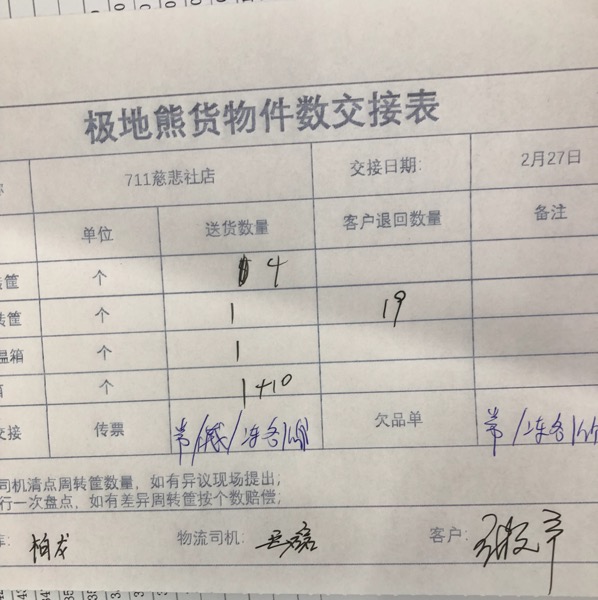 极地熊货物件数交接表
称 711慈悲社店 交接日期: 2月27日
单位 送货数量 客户退回数量 备注
筐 个 4
转筐 个 1 19
温箱 个 1
箱 个 1+10
交接 传票 常/低/冻各1份 欠品单 常/冻各1份
司机清点周转筐数量，如有异议现场提出；
行一次盘点，如有差异周转筐按个数赔偿；
库: 柏龙 物流司机: 客户: